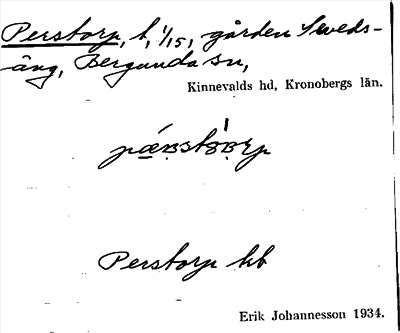 Perstorp, t, 1/15, gården Sveds-
äng, Bergunda sn,
Kinnevalds hd, Kronobergs län.
Perstorp hb
Erik Johannesson 1934.